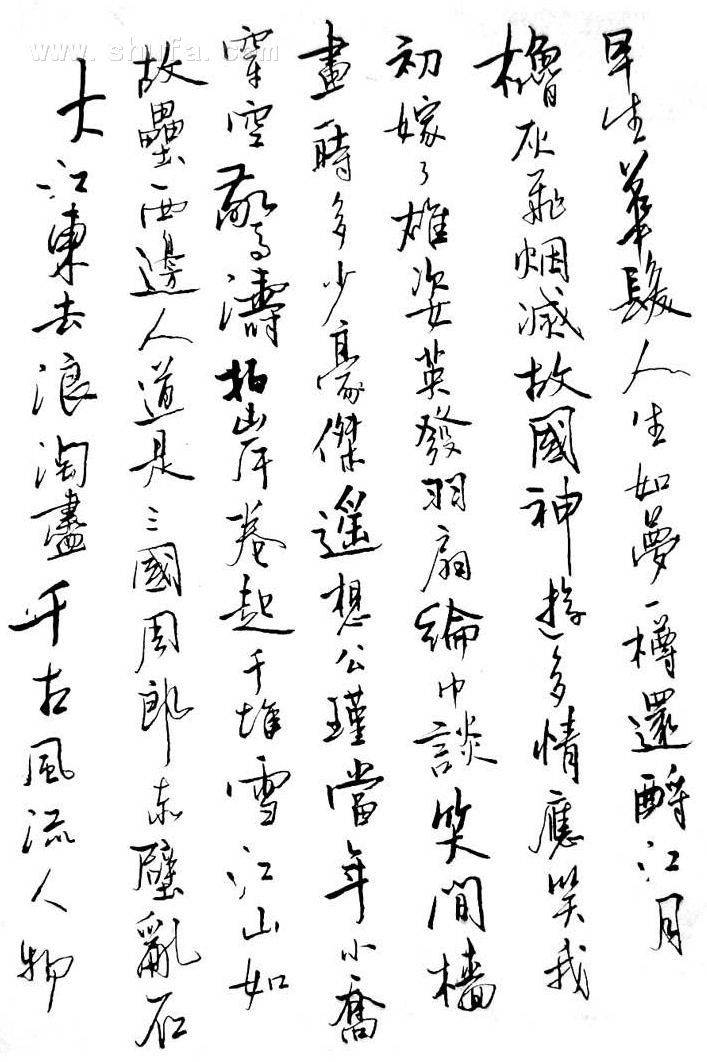 www.shufa.com
大江東去浪淘盡千古風流人物
故壘西邊人道是三國周郎赤壁亂石
穿空驚濤拍岸卷起千堆雪江山如
畫一時多少豪傑遙想公瑾當年小喬
初嫁了雄姿英發羽扇綸巾談笑間檣
櫓灰飛烟滅故國神遊多情應笑我
早生華髮人生如夢一樽還酹江月